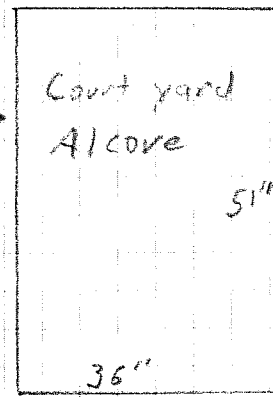 Court yard
Alcove
51"
36"